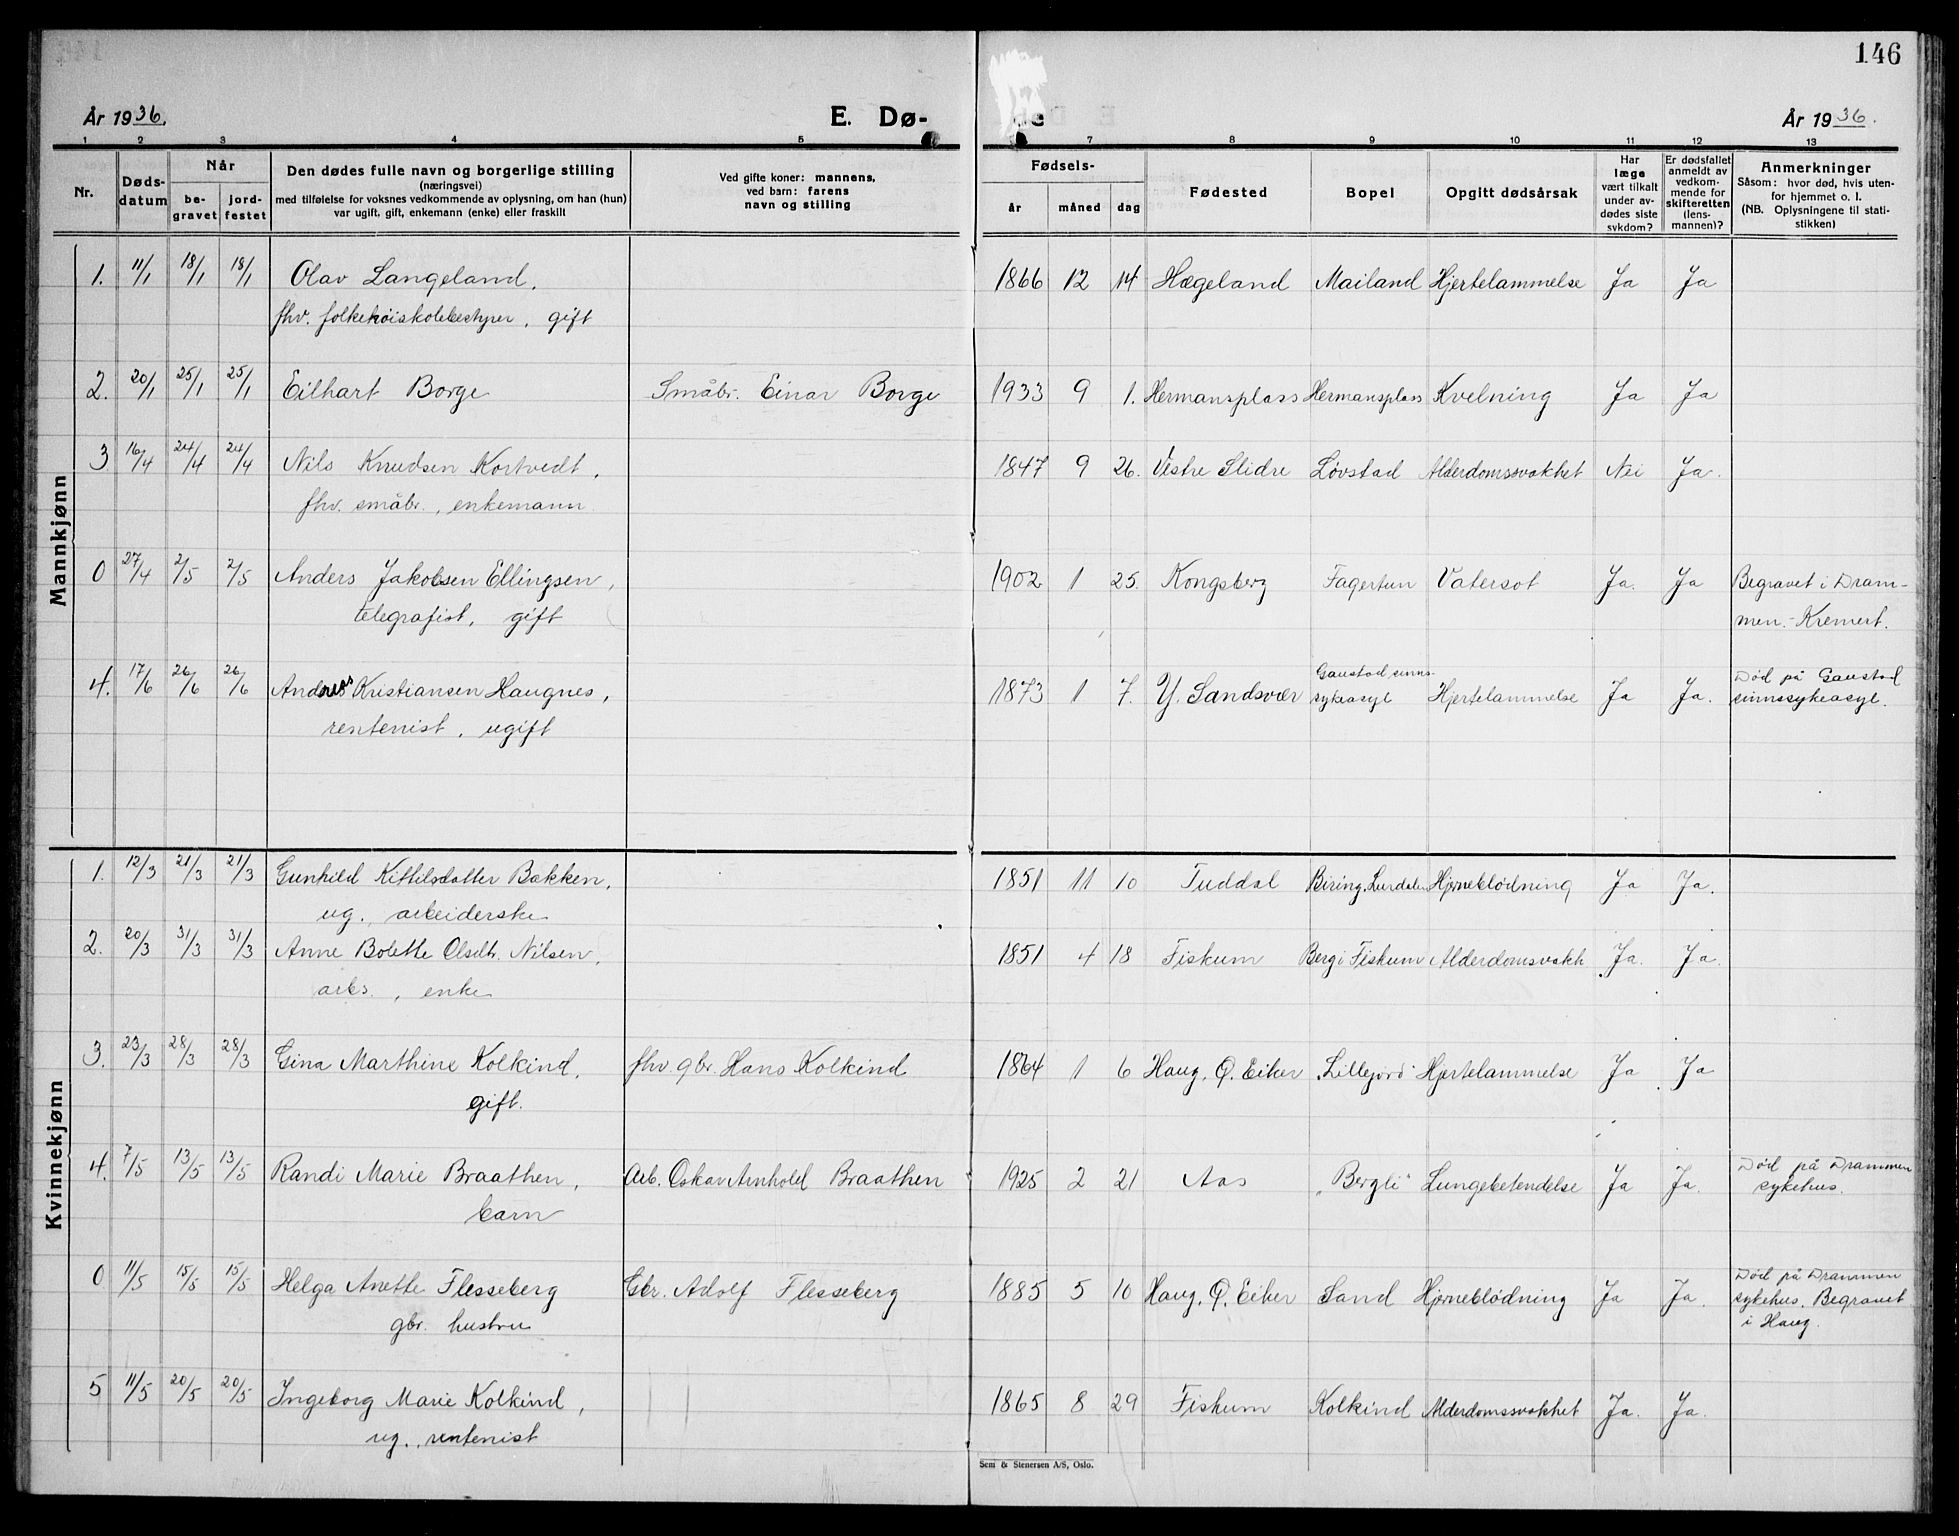 146
År 1936. E. Dø- de År 1936.
1 2 3 4 5 7 8 9 10 11 12 13
Nr. Døds-datum Når be-gravet jord-festet Den dødes fulle navn og borgerlige stilling (næringsvei) med tilføielse for voksnes vedkommende av oplysning, om han (hun) var ugift, gift, enkemann (enke) eller fraskilt Ved gifte koner: mannens, ved barn: farens navn og stilling Fødsels- år måned dag Fødested Bopel Opgitt dødsårsak Har læge vært tilkalt under av-dødes siste sykdom? Er dødsfallet anmeldt av vedkom-mende for skifteretten (lens-mannen)? Anmerkninger Såsom: hvor død, hvis uten-for hjemmet o. l. (NB. Oplysningene til stati-stikken)
Mannkjønn
1. 11/1 18/1 18/1 Olav Langeland, 1866 12 14 Hægeland Mailand Hjertelammelse Ja Ja
fhv. folkehøiskolebestyrer, gift
2. 20/1 25/1 25/1 Eilhart Borge Småbr. Einar Borge 1933 9 1. Hermansplass Hermansplass Kvelning Ja Ja
3 16/4 24/4 24/4 Nils Knudsen Kortvedt, 1847 9 26. Vestre Slidre Løvstad Alderdomssvakhet Nei Ja.
fhv. småbr., enkemann
0 27/4 2/5 2/5 Anders Jakobsen Ellingsen, 1902 1 25. Kongsberg Fagertun Vatersot Ja. Ja Begravet i Dram-
telegrafist, gift men. - Kremert.
4. 17/6 26/6 26/6 Andreas Kristiansen Haugnes, 1873 1 7. Y. Sandsvær Gaustad sinns-sykeasyl Hjertelammelse Ja Ja. Død på Gaustad sinnssykeasyl.
rentenist, ugift
Kvinnekjønn
1. 12/3 21/3 21/3 Gunhild Kittilsdatter Bakken, 1851 11 10 Tuddal Biring, Lurdalen Hjerneblödning Ja Ja.
ug., arbeiderske
2. 20/3 31/3 31/3 Anne Bolette Olsdtr. Nilsen, 1851 4 18 Fiskum Berg i Fiskum Alderdomsvakh. Ja. Ja.
arbs., enke
3. 23/3 28/3 28/3 Gina Marthine Kolkind, fhv. gbr. Hans Kolkind 1864 1 6 Haug, Ø. Eiker "Lillejord" Hjertelammelse Ja Ja
gift.
4. 7/5 13/5 13/5 Randi Marie Braathen, Arb. Oskar Arnhold Braathen 1925 2 21 Aas "Bergli" Lungebetendelse Ja Ja. Død på Drammen sykehus.
barn
0 11/5 15/5 15/5 Helga Anette Flesseberg Gbr. Adolf Flesseberg 1885 5 10 Haug, Ø. Eiker Sand Hjerneblödning Ja Ja. Død på Drammen sykehus. Begravet i Haug.
gbr. hustru
5 11/5 20/5 20/5 Ingeborg Marie Kolkind, 1865 8 29 Fiskum Kolkind Alderdomssvakhet Ja. Ja.
ug., rentenist
Sem & Stenersen A/S, Oslo.